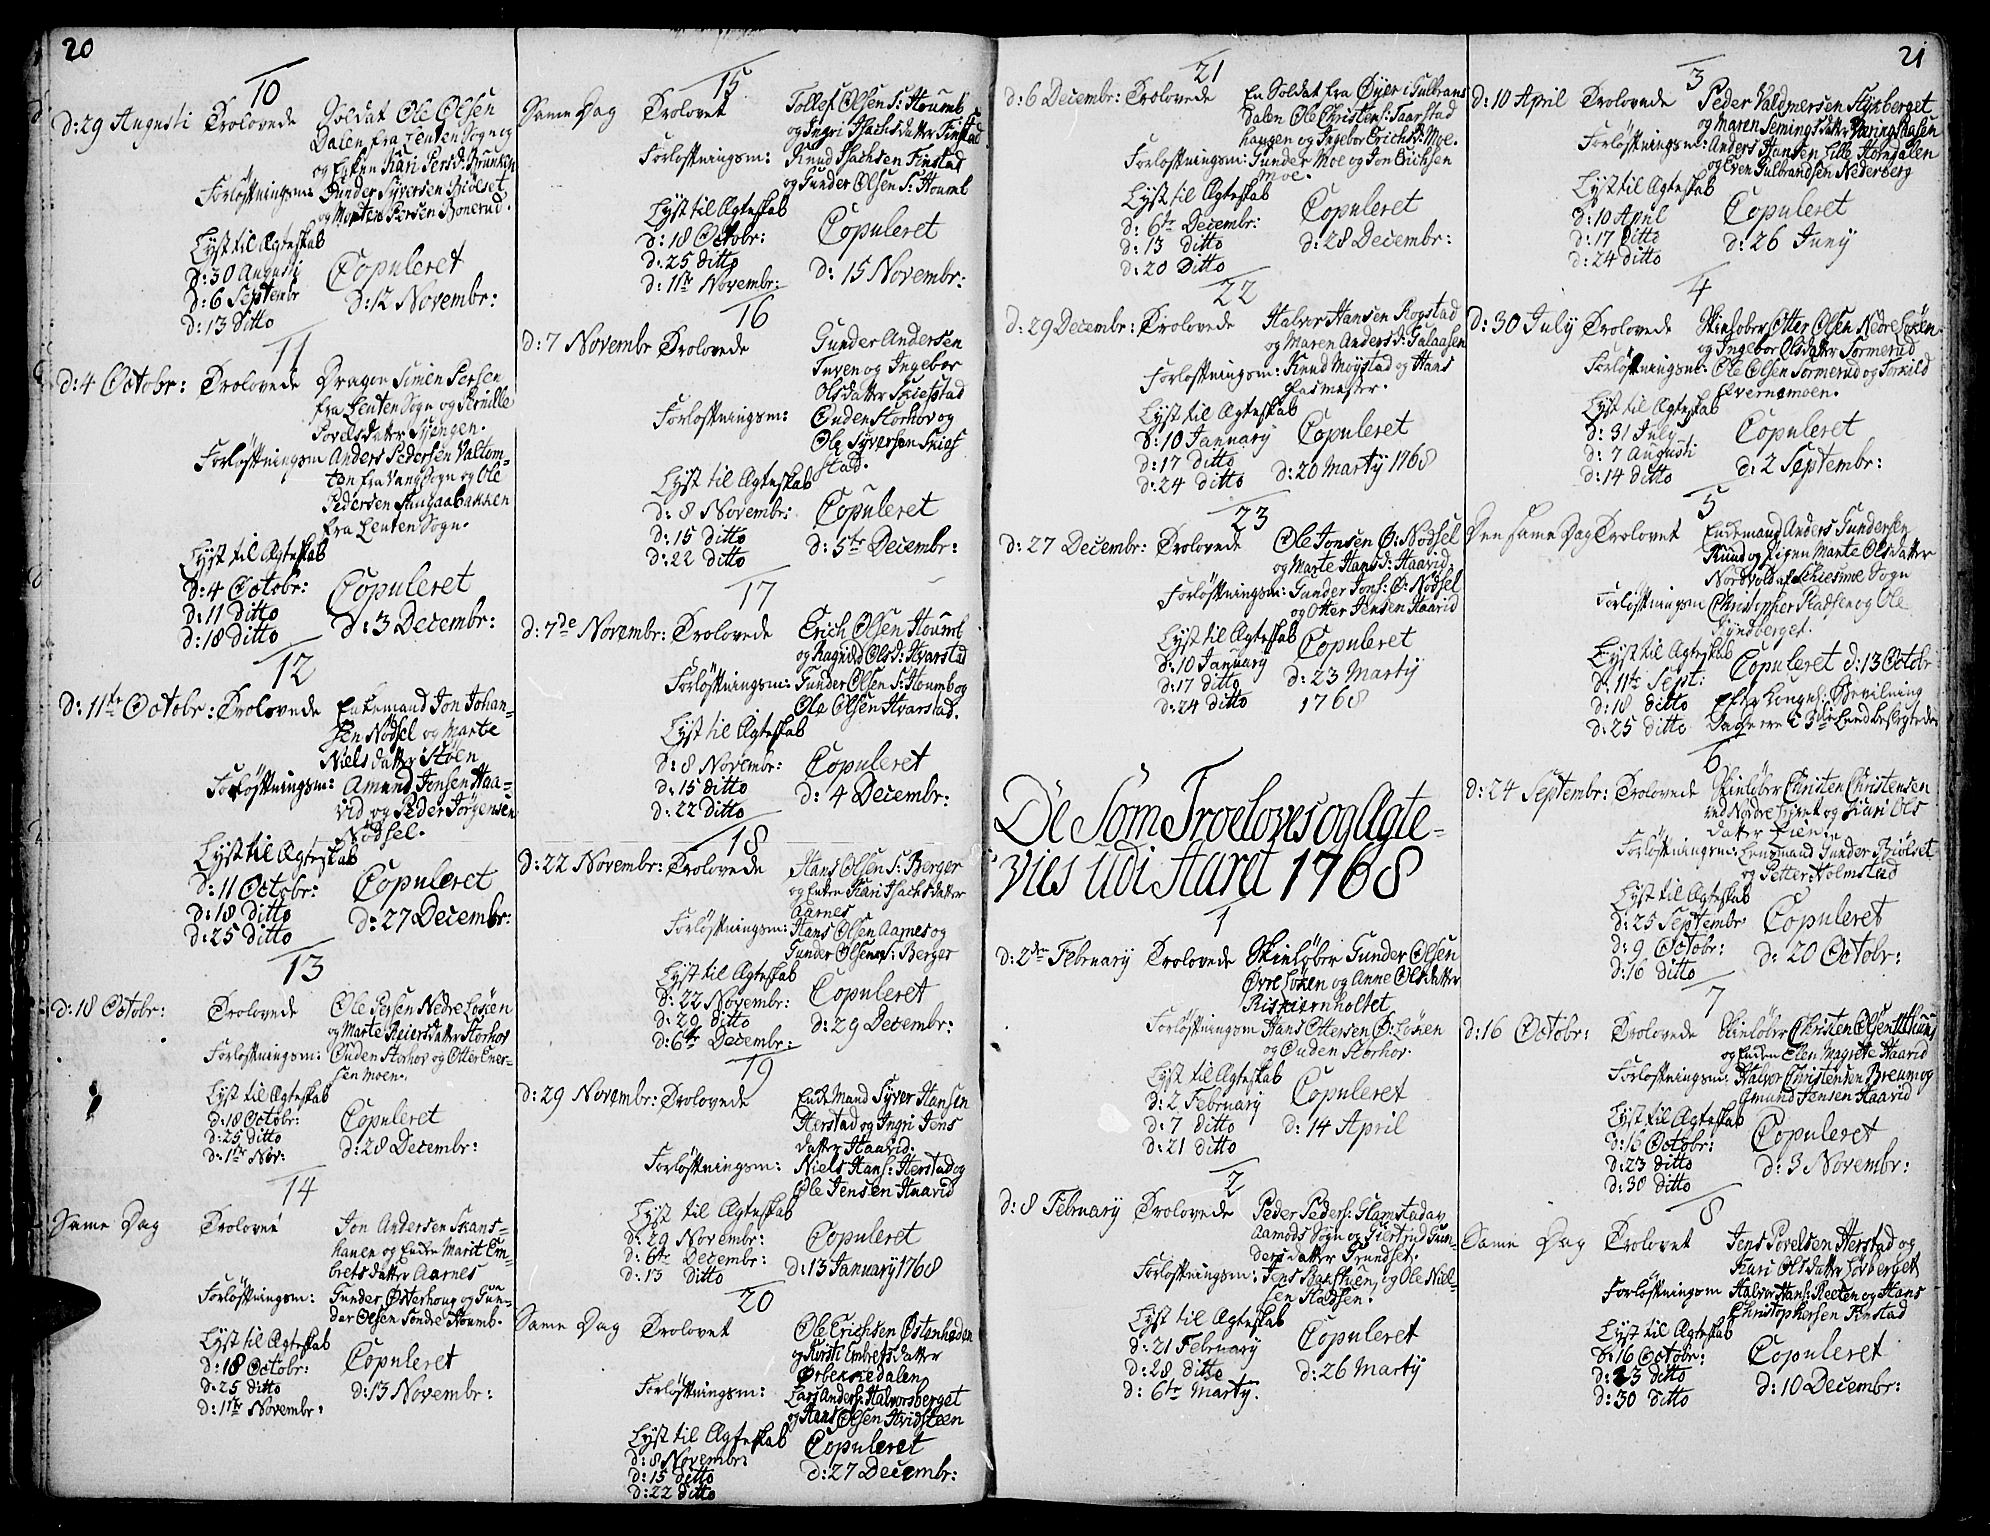 20
10
d: 29 Augusti Trolovede Soldat Ole Olsen
Dalen fra Leuten Sogn og
og Enken Kari Persd:
Forløftningsm: Gunder Syversen
og Morten Persen Bonerud.
Lyst til Ægteskab
d: 30 Augusti
d: 6 Septembr
d: 13 Ditto
Copuleret
d: 12 Novembr:
11
d: 4 Octobr: Trolovede Dragon Simen Persen
fra Leuten Sogn og Pernille
Povelsdatter
Forløftningsm Anders Pedersen
fra Vang Sogn og Ole
Pedersen
fra Leuten Sogn.
Lyst til Ægteskab
d: 4 Octobr:
d: 11 Ditto
d: 18 Ditto
Copuleret
d: 3 Decembr:
12
d: 11te Octobr: Trolovede Enkemand Jon Johan-
sen Nødsel og Marte
Nielsdatter Støen
Forløftningsm: Amund Jonsen Haa-
vid og Peder Jørgensen
Nødsel.
Lyst til Ægteskab
d: 11 Octobr:
d: 18 Ditto
d: 25 Ditto
Copuleret
d: 27 Decembr:
13
d: 18 Octobr: Trolovede Ole Persen Nedre Løken
og Marte Reiersdatter Storhov
Forløftningsm: Ouden Storhov og Otter Ener-
sen Moen.
Lyst til Ægteskab
d: 18 Octobr:
d: 25 ditto
d: 1te Nov:
Copuleret
d: 28 Decembr:
14
Same Dag Trolovet Jon Andersen Skans-
hauen og Enken Marit Em-
bretsdatter Aarnes
Forløftningsm: Gunder Østerhoug og Gun-
der Olsen Søndre Houmb.
Lyst til Ægteskab
d: 18 Octobr:
d: 25 ditto
d: 1te Novembr:
Copuleret
d: 13 Novembr:
15
Same Dag Trolovet Tollef Olsen S: Houmb
og Ingri Isachsdatter Finstad
Forløftningsm: Knud Isachsen Finstad
og Gunder Olsen S: Houmb
Lyst til Ægteskab
d: 18 Octobr:
d: 25 ditto
d: 11te Novembr:
Copuleret
d: 15 Novembr:
16
d: 7 Novembr Trolovede Gunder Andersen
Tuven og Ingebor
Olsdatter Skiefstad
Forløftningsm: Ouden Storhov og
Ole Syversen Skief
stad.
Lyst til Ægteskab
d: 8 Novembr:
d: 15 ditto
d: 22 ditto
Copuleret
d: 5te Decembr:
17
d: 7de Novembr: Trolovede Erich Olsen Houmb
og Ragnild Olsd: Hvarstad
Forløftningsm: Gunder Olsen S: Houmb og
Ole Olsen Hvarstad.
Lyst til Ægteskab
d: 8 Novembr:
d: 15 ditto
d: 22 ditto
Copuleret
d: 4 Decembr:
18
d: 22 Novembr: Trolovede Hans Olsen S: Berger
og Enken Kari Isachsdatter
Aarnes
Forløftningsm: Hans Olsen Aarnes og
Gunder Olsen S: Berger
Lyst til Ægteskab
d: 22 Novembr:
d: 29 ditto
d: 6te Decembr:
Copuleret
d: 29 Decembr:
19
d: 29 Novembr: Trolovede Enkemand Syver Hansen
Herstad og Ingri Jens
datter Haavid.
Forløftningsm: Niels Hans: Herstad og
Ole Jensen Haavid
Lyst til Ægteskab
d: 29 Novembr:
d: 6te Decembr:
d: 13 ditto
Copuleret
d: 13 January 1768
20
Same Dag Trolovet Ole Erichsen Østenheden
og Kirsti Embretsdatter
Ørbekkedalen
Forløftningsm: Lars Anders: Halvorsberget
og Hans Olsen Hvidsteen
Lyst til Ægteskab
d: 8 Novembr:
d: 15 ditto
d: 22 ditto
Copuleret
d: 27 Decembr:
21
21
d: 6 Decembr: Trolovede En Soldat fra Øyer i Gulbrans
dalen Ole Christens: Taarstad
haugen og Ingebor Erichsd: Moe.
Forløftningsm: Gunder Moe og Jon Erichsen
Moe.
Lyst til Ægteskab
d: 6te Decembr:
d: 13 ditto
d: 20 Ditto
Copuleret
d: 28 Decembr:
22
d: 29 Decembr: Trolovede Halvor Hansen Rogstad
og Maren Andersd: Gulaasen
Forløftningsm: Knud Møystad og Hans
Glasmester.
Lyst til Ægteskab
d: 10 January
d: 17 ditto
d: 24 ditto
Copuleret
d: 20 Marty 1768
23
d: 27 Decembr: Trolovede Ole Jonsen Ø: Nødsel
og Marte Hansd: Haavid
Forløftningsm: Gunder Jons: Ø: Nødsel
og Otter Jensen Haavid
Lyst til Ægteskab
d: 10 January
d: 17 ditto
d: 24 ditto
Copuleret
d: 23 Marty
1768
De Som Troeloves og Ægte-
vies udi Aaret 1768
1
d: 2den February Trolovede Skiløber Gunder Olsen
Øvre Løken og Anne Olsdatter
Riskiernholtet
Forløftningsm Hans Ottersen Ø: Løken
og Ouden Storhov.
Lyst til Ægteskab
d: 2 February
d: 7 ditto
d: 21 ditto
Copuleret
d: 14 April
2
d: 8 February Trolovede Peder Peders: Glamstad av
Aamods Sogn og Giertrud Gun-
dersdatter Grundset.
Forløftningsm: Jens og Ole Niel-
sen Stadsen.
Lyst til Ægteskab
d: 21 February
d: 28 ditto
d: 6te Marty.
Copuleret
d: 26 Marty
3
d: 10 April Trolovede Peder Valdmersen Styxberget
og Maren Semingsdatter Væringsaasen
Forløftningsm: Anders Hansen Lille Horndalen
og Even Gulbrandsen Nederberg
Lyst til Ægteskab
d: 10 April
d: 17 ditto
d: 24 ditto
Copuleret
d: 26 Juny
4
d: 30 July Trolovede Skiløber Otter Olsen Nedre Løken
og Ingebor Olsdatter Sormerud
Forløftningsm: Ole Olsen Sormerud og Torkild
Qvernemoen.
Lyst til Ægteskab
d: 31 July
d: 7 Augusti
d: 14 ditto
Copuleret
d: 2 Septembr:
5
Den same Dag Trolovet Enkemand Anders Gundersen
og Pigen Marte Olsdatter
Nordvold af Sogn
Forløftningsm Christopher Stadsen og Ole
Kyndberget.
Lyst til Ægteskab
d: 11te Sept:
d: 18 ditto
d: 25 ditto
Copuleret d: 13 Octobr
efter Konges: Bevilning
Da de ere i 3die Leed beslegtede
6
d: 24 Septembr: Trolovede Skiløber Christen Christensen
ved Nordre og Kari Ols
datter
Forløftningsm: Lensmand Gunder Bjølset
og Petter Holmstad
Lyst til Ægteskab
d: 25 Septembr
d: 9 Octobr:
d: 16 ditto
Copuleret
d: 20 Octobr:
7
d: 16 Octobr: Trolovede Skiløber Christen Olsen
og Enken Elen Magrete Haavid
Forløftningsm: Halvor Christensen Breum og
Gmund Jensen Haavid
Lyst til Ægteskab
d: 16 Octobr:
d: 23 ditto
d: 30 ditto
Copuleret
d: 3 Novembr:
8
Same Dag Trolovet Jens Povelsen Herstad og
Kari Olsdatter Løvberget
Forløftningsm Halvor Hans: Reeten og Hans
Christophersen Finstad
Lyst til Ægteskab
d: 16 Octobr:
d: 23 ditto
d: 30 ditto
Copuleret
d: 10 Decembr: